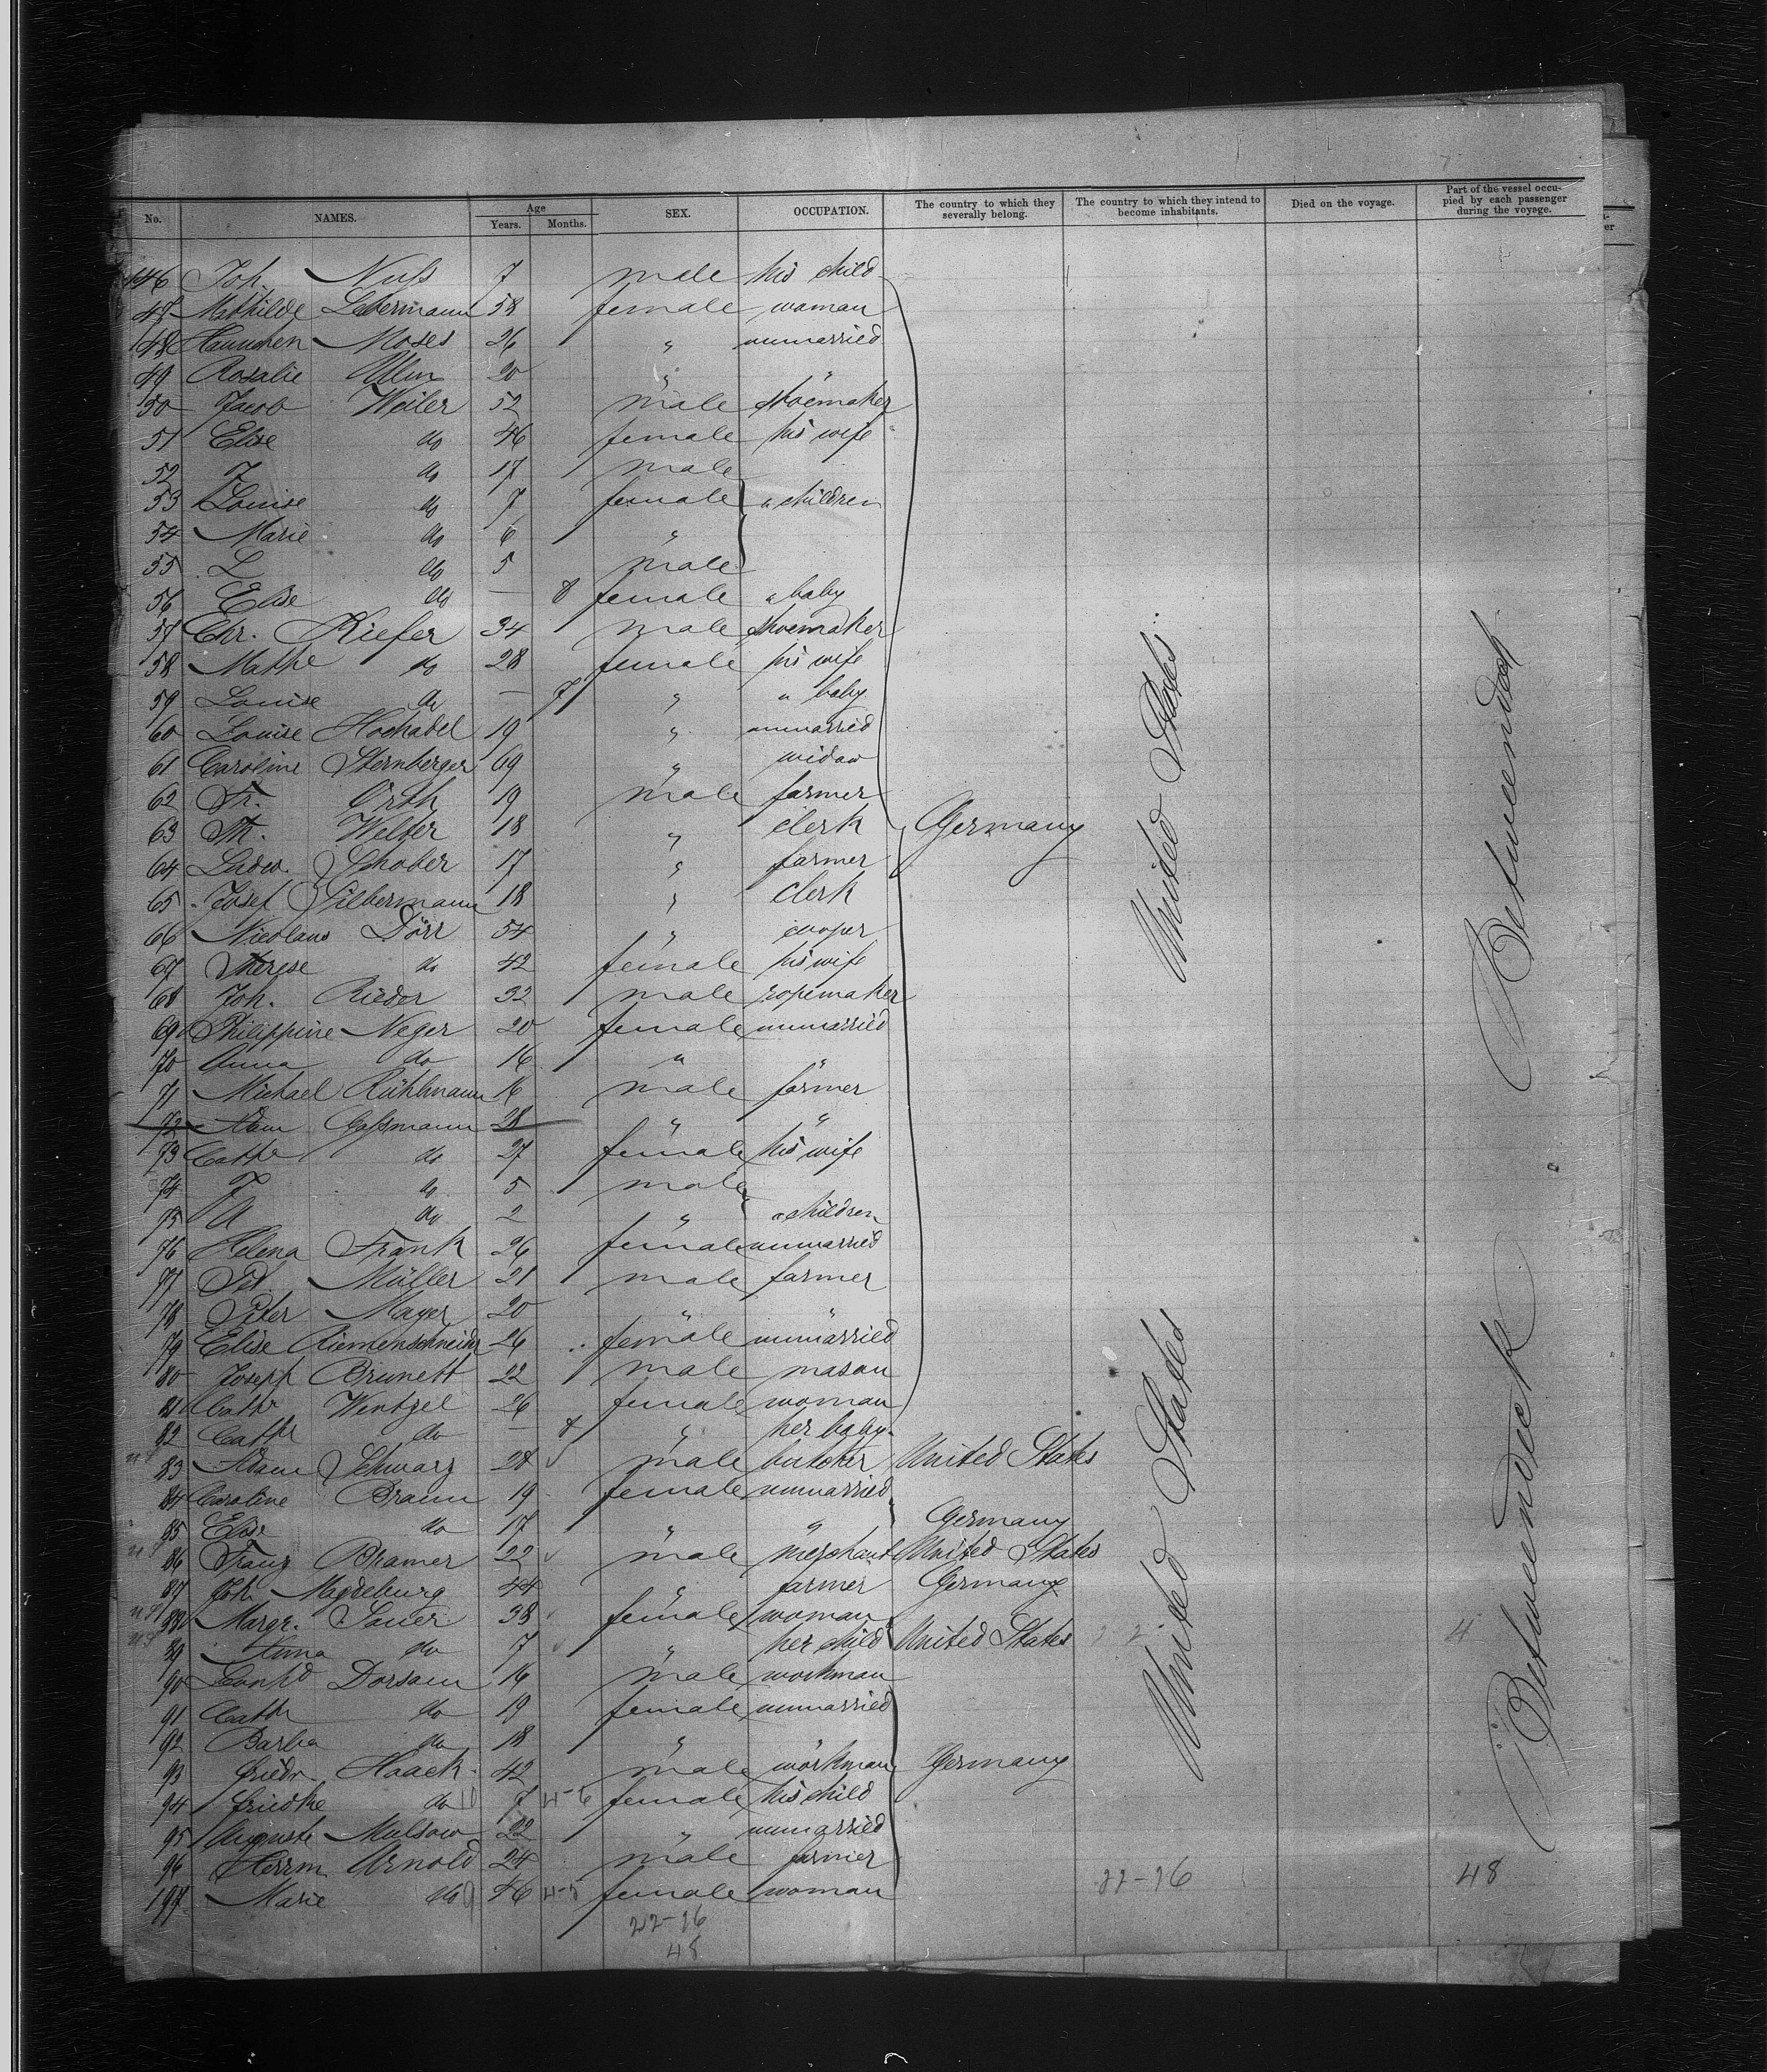 No. NAMES. Age Years. Months. SEX. OCCUPATION. The country to which they severally belong. The country to which they intend to become inhabitants. Died on the voyage. Part of the vessel occupied by each passenger during the voyage.
146 Joh. Nuß 7 male his child
47 Mathilde Lebermann 58 female woman
48 Hannchen Moses 26 " unmarried
49 Rosalie Ullm 20 " "
50 Jacob Weiler 52 male shoemaker
51 Elise do 46 female his wife
52 J do 17 male
53 Louise do 7 female " children
54 Marie do 6 "
55 L do 5 male
56 Elise do — 8 female " baby
57 Chr. Kiefer 34 male shoemaker
58 Mathe do 28 female his wife
59 Louise do — 7 " " baby
60 Louise Hochadel 19 " unmarried
61 Caroline Sternberger 69 " widow
62 Fr. Orth 19 male farmer
63 Th. Welter 18 " clerk Germany
64 Ludw. Schober 17 " farmer
65 Josef Silbermann 18 " clerk
66 Nicolaus Dörr 54 " cooper
67 Therese do 42 female his wife
68 Joh. Rieder 32 male ropemaker
69 Philippine Neger 20 female unmarried
70 Anna do 16 " "
71 Michael Rühlmann 16 male farmer
72 Adam Gaßmann 28 " "
73 Cathe do 27 female his wife
74 F do 5 male
75 A do 2 " " children
76 Helena Frank 26 female unmarried
77 Pet. Müller 21 male farmer
78 Peter Mayer 20 " "
79 Elise Riemenschneider 26 female unmarried
80 Joseph Brunett 22 male mason
81 Cathr Wentzel 26 female woman
82 Cathr do — 8 " her baby
83 Adam Schwarz 28 male butcher United States
84 Caroline Braun 19 female unmarried
85 Elise do 17 " " Germany
86 Franz Bramer 22 male merchant United States
87 Joh. Magdeburg 44 " farmer Germany
88 Margr. Sauer 38 female woman
89 Anna do 7 " her child United States
90 Conrd Dorsam 16 male workman
91 Cathr do 19 female unmarried
92 Barba do 18 "
93 Friedr. Haack 42 male workman Germany
94 Friedke do 7 female his child
95 Auguste Mulsow 22 " unmarried
96 Herrm Arnold 24 male farmer
197 Marie do 46 female woman
22-26
48
United States
United States
22-26
Betweendeck
Betweendeck
4
48